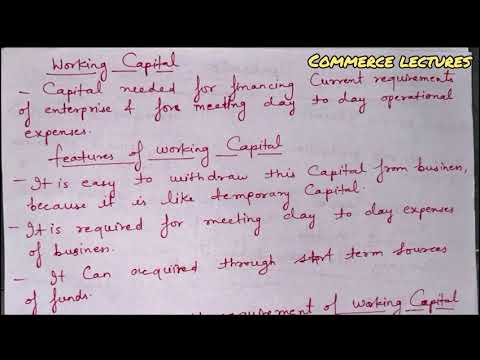 Commerce lectures
Working Capital
- Capital needed for financing Current requirements
of enterprise & for meeting day to day operational
expenses.
features of working Capital
- It is easy to withdraw this Capital from business,
because it is like temporary Capital.
- It is required for meeting day to day expenses
of business.
- It Can acquired through short term sources
of funds.
requirement of working Capital